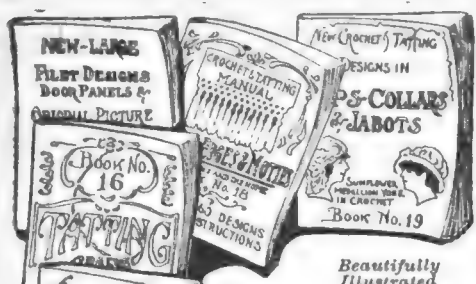 NEW-LARGE
FILET DESIGNS
DOOR PANELS &
ORIGINAL PICTURE
CROCHET & TATTING
MANUAL
EDGES & MOTIFS
No. 18
DESIGNS
INSTRUCTIONS
NEW CROCHET & TATTING
DESIGNS IN
PS-COLLARS
& JABOTS
SUNFLOWER
MEDALLION YOKE
IN CROCHET
BOOK No. 19
BOOK No.
16
TATTING
Beautifully
Illustrated